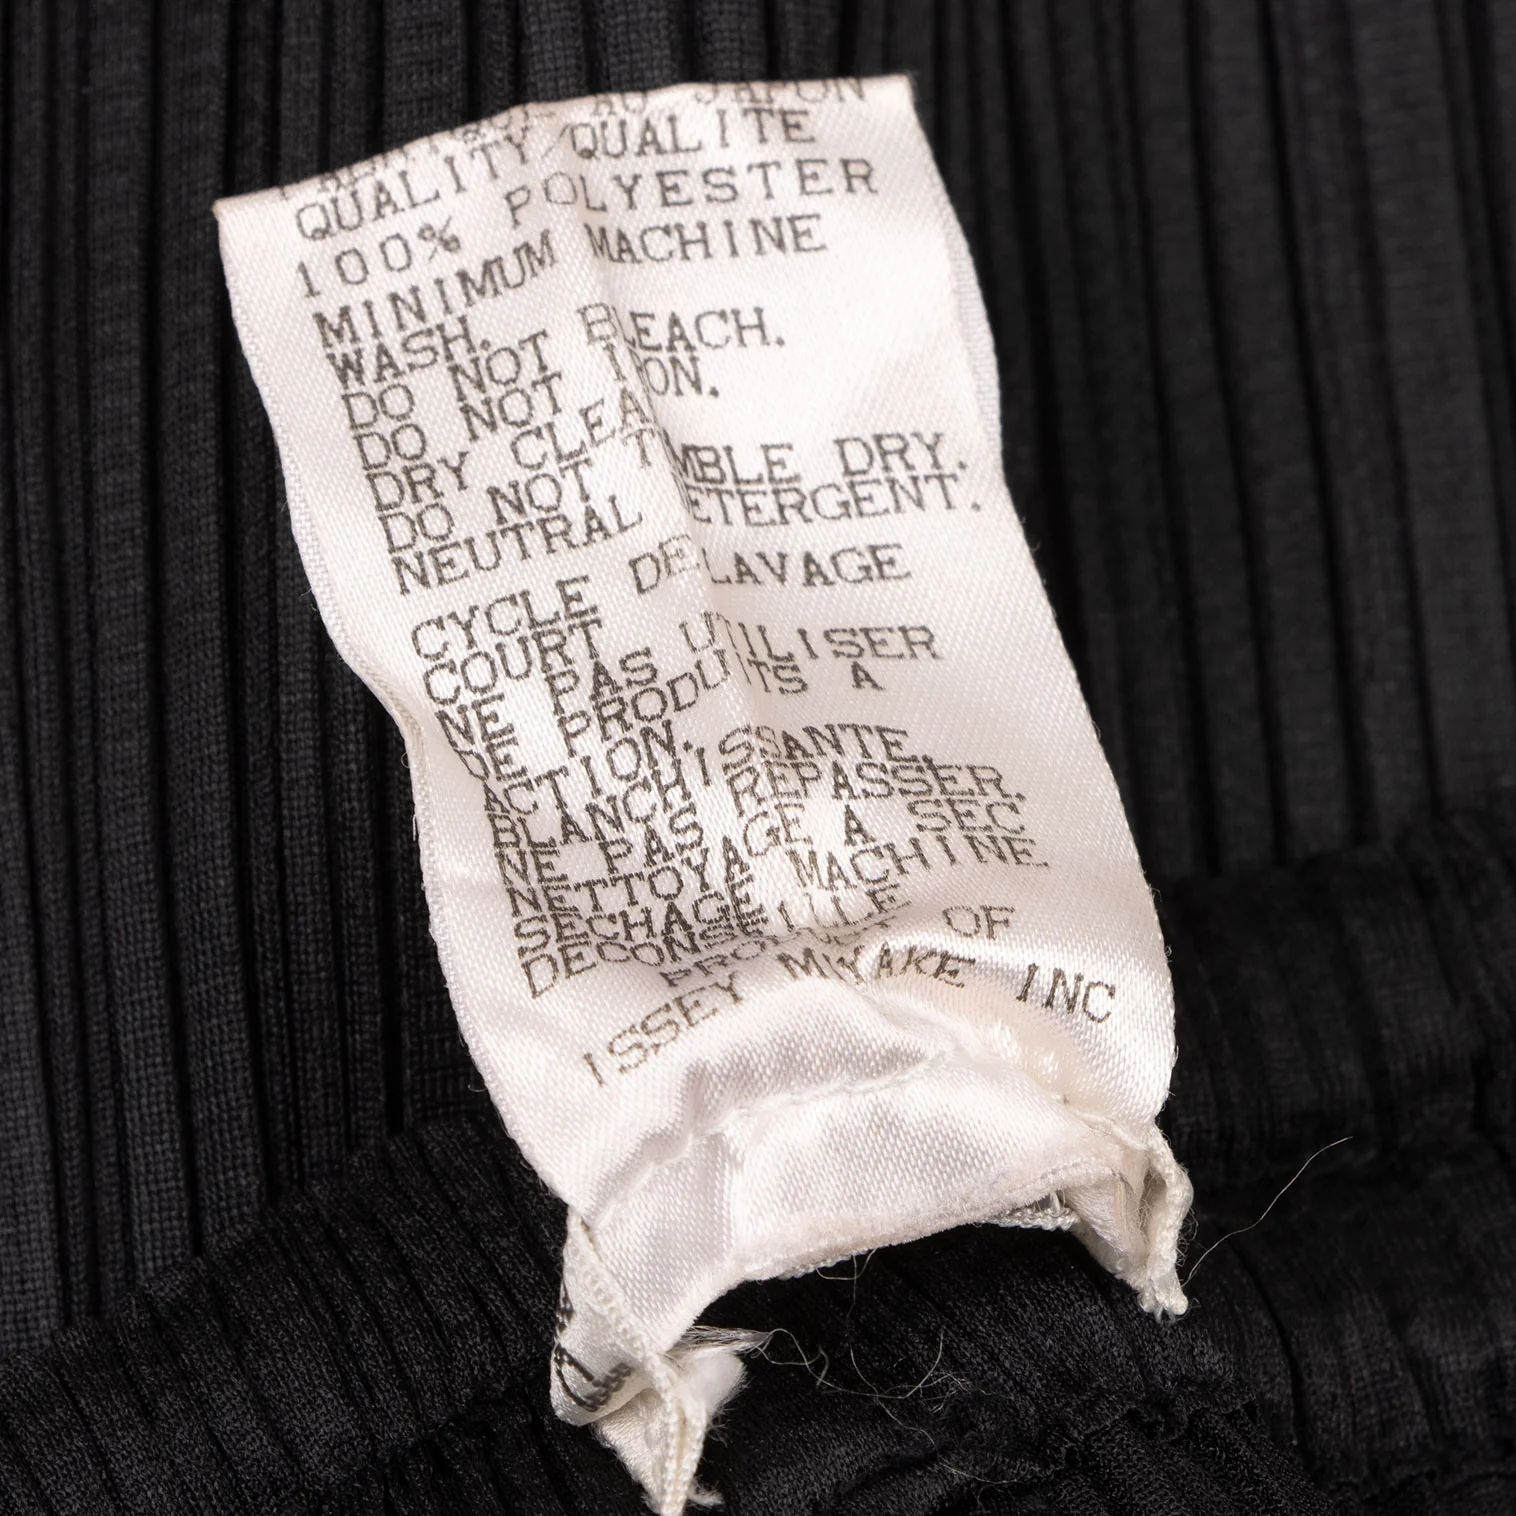 AU JAPON
QUALITY/QUALITE
100% POLYESTER
MINIMUM MACHINE
WASH.
DO NOT BLEACH.
DO NOT IRON.
DRY CLEA
DO NOT TUMBLE DRY.
NEUTRAL DETERGENT.
CYCLE DE LAVAGE
COURT
NE PAS UTILISER
DE PRODUITS A
ACTION.
BLANCHISSANTE.
NE PAS REPASSER.
NETTOYAGE A SEC
SECHAGE MACHINE
DECONSEILLE
PRODUCT OF
ISSEY MIYAKE INC